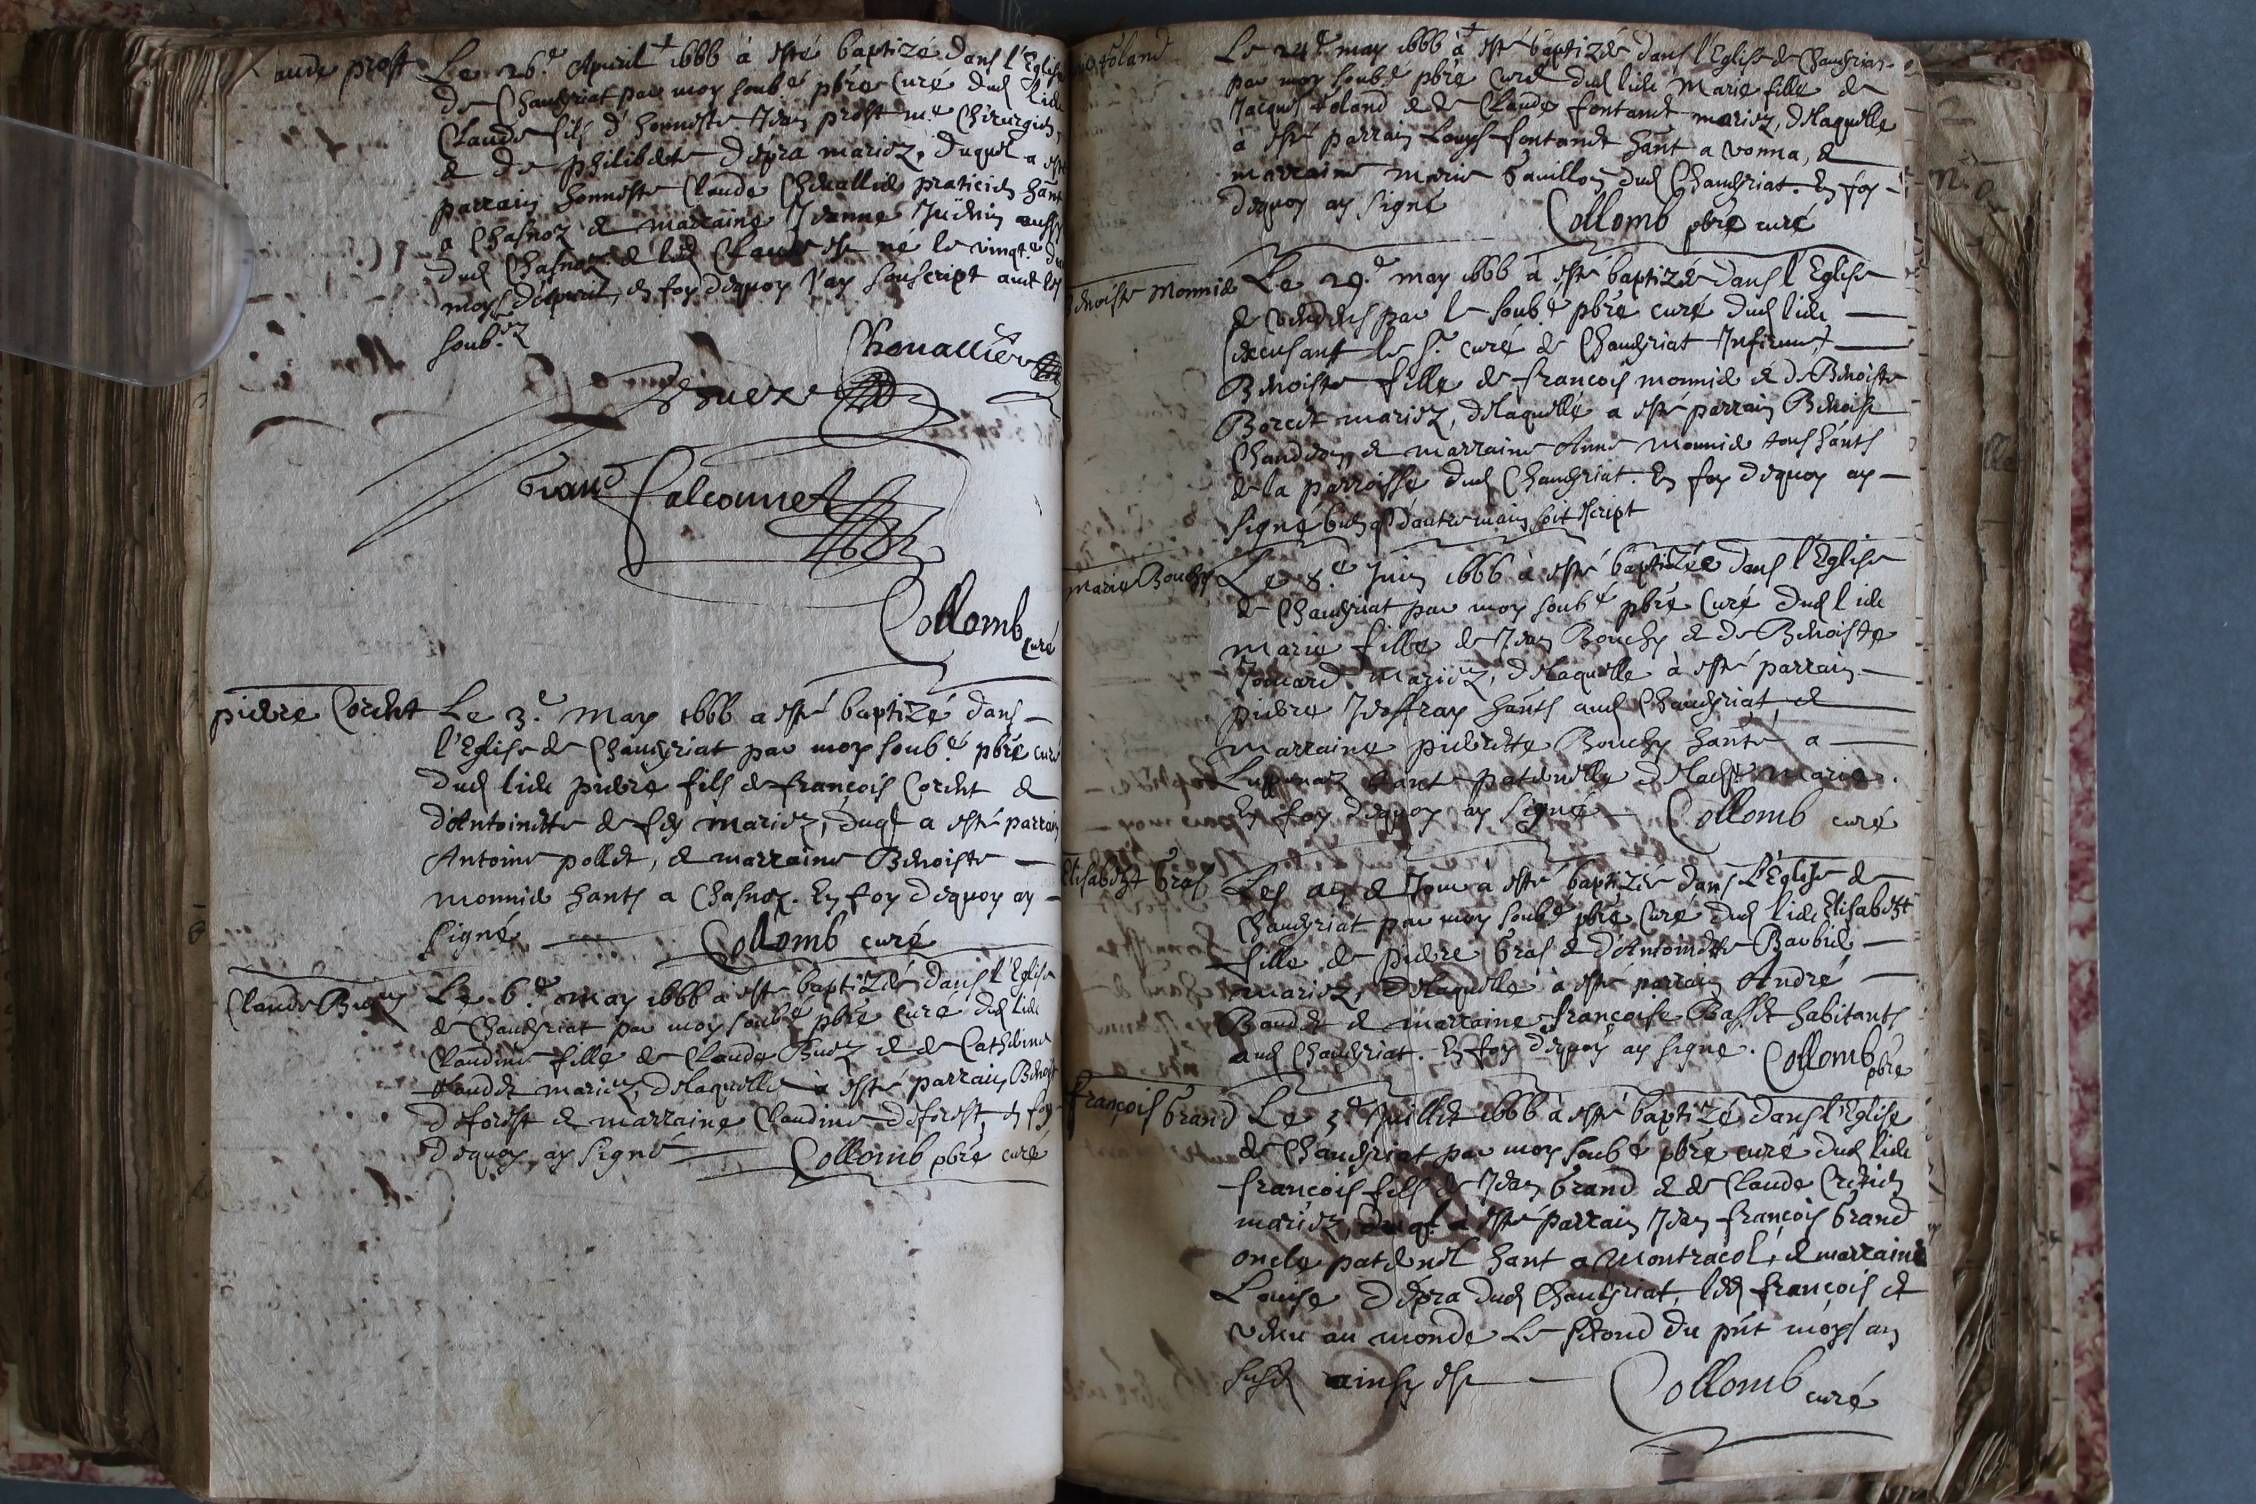 aude prost
Le 26.e Apuril 1666 à esté baptizé dans l'Eglise
de Chaueyriat par moy soub.é pbre Curé dud. lieu
Claude fils d'honneste Jean prost m.e Chirurgien
& de philiberte depra mariez, duquel a esté
parrain honneste Claude Cheuallier praticien hant
a Chasnoz & marraine Jeanne aussy
dud Chasnoz & led Claude est né le vingt.e du
moys d'apuril, en foy dequoy j'ay souscript auec les
soub.ez
Cheuallier
Grand
falconnet
Collomb
curé
pierre Corent
Le 3.e May 1666 a esté baptizé dans
l'Eglise de Chaueyriat par moy soub.é pbre curé
dud lieu pierre fils de françois Corent &
d'Antoinette de mariez, duql a esté parrain
Antoine pollet, & marraine Benoiste
monnier hants a Chasnoz. En foy dequoy ay
signé Collomb curé
Claude
Le 6.e may 1666 a esté baptizée dans l'Eglise
de Chaueyriat par moy soubé pbre curé dud lieu
Claudine fille de Claude & de Catherine
mariez, delaquelle à esté parrain Benoist
deforest & marraine Claudine deforest, en foy
dequoy ay signé Collomb pbre curé
foland
Le 24.e may 1666 à esté baptizée dans l'Eglise de Chaueyriat
par moy soubé pbre Curé dud lieu Marie fille de
Jacques foland & de Claude fontanet mariez, delaquelle
à esté parrain Louys fontanet hant a vonna, &
marraine Marie dud Chaueyriat. En foy
dequoy ay signé Collomb pbre curé
Benoiste Monnier
Le 29.e may 1666 à esté baptizée dans l'Eglise
de par le soub.é pbre curé dud lieu
le s.r curé de Chaueyriat Infirme,
Benoiste fille de françois monnier & de Benoiste
mariez, delaquelle a esté parrain Benoist
& marraine Anne Monnier tous hants
de la parroisse dud Chaueyriat. En foy dequoy ay
signé bien q. d'autre main soit escript
Marie Bouchy
Le 8.e Juin 1666 à esté baptizée dans l'Eglise
de Chaueyriat par moy soubé pbre Curé dud lieu
Marie fille de Jean Bouchy & de Benoiste
mariez, delaquelle à esté parrain
pierre Jeoffray hants aud Chaueyriat, &
marraine pierrette Bouchy hante a
tante paternelle delad.e Marie.
En foy dequoy ay signé Collomb curé
Elisabeht Gras
Les an & Jour à esté baptizée dans l'Eglise de
Chaueyriat par moy soubé pbre Curé dud lieu Elisabeht
fille de pierre Gras & d'Antoinette Barbier
mariez, delaquelle à esté parrain André
Baudet & marraine françoise Basset habitants
aud Chaueyriat. En foy dequoy ay signé. Collomb pbre
françois Grand
Le 5.e Juillet 1666 à esté baptizé dans l'Eglise
de Chaueyriat par moy soubé pbre curé dud lieu
françois fils de Jean Grand & de Claude
mariez, duql. a esté parrain Jean françois Grand
oncle paternel hant a Montracol, & marraine
Louise depra dud Chaueyriat, led françois est
venu au monde le second du pnt moys an
susd ainsy est Collomb curé